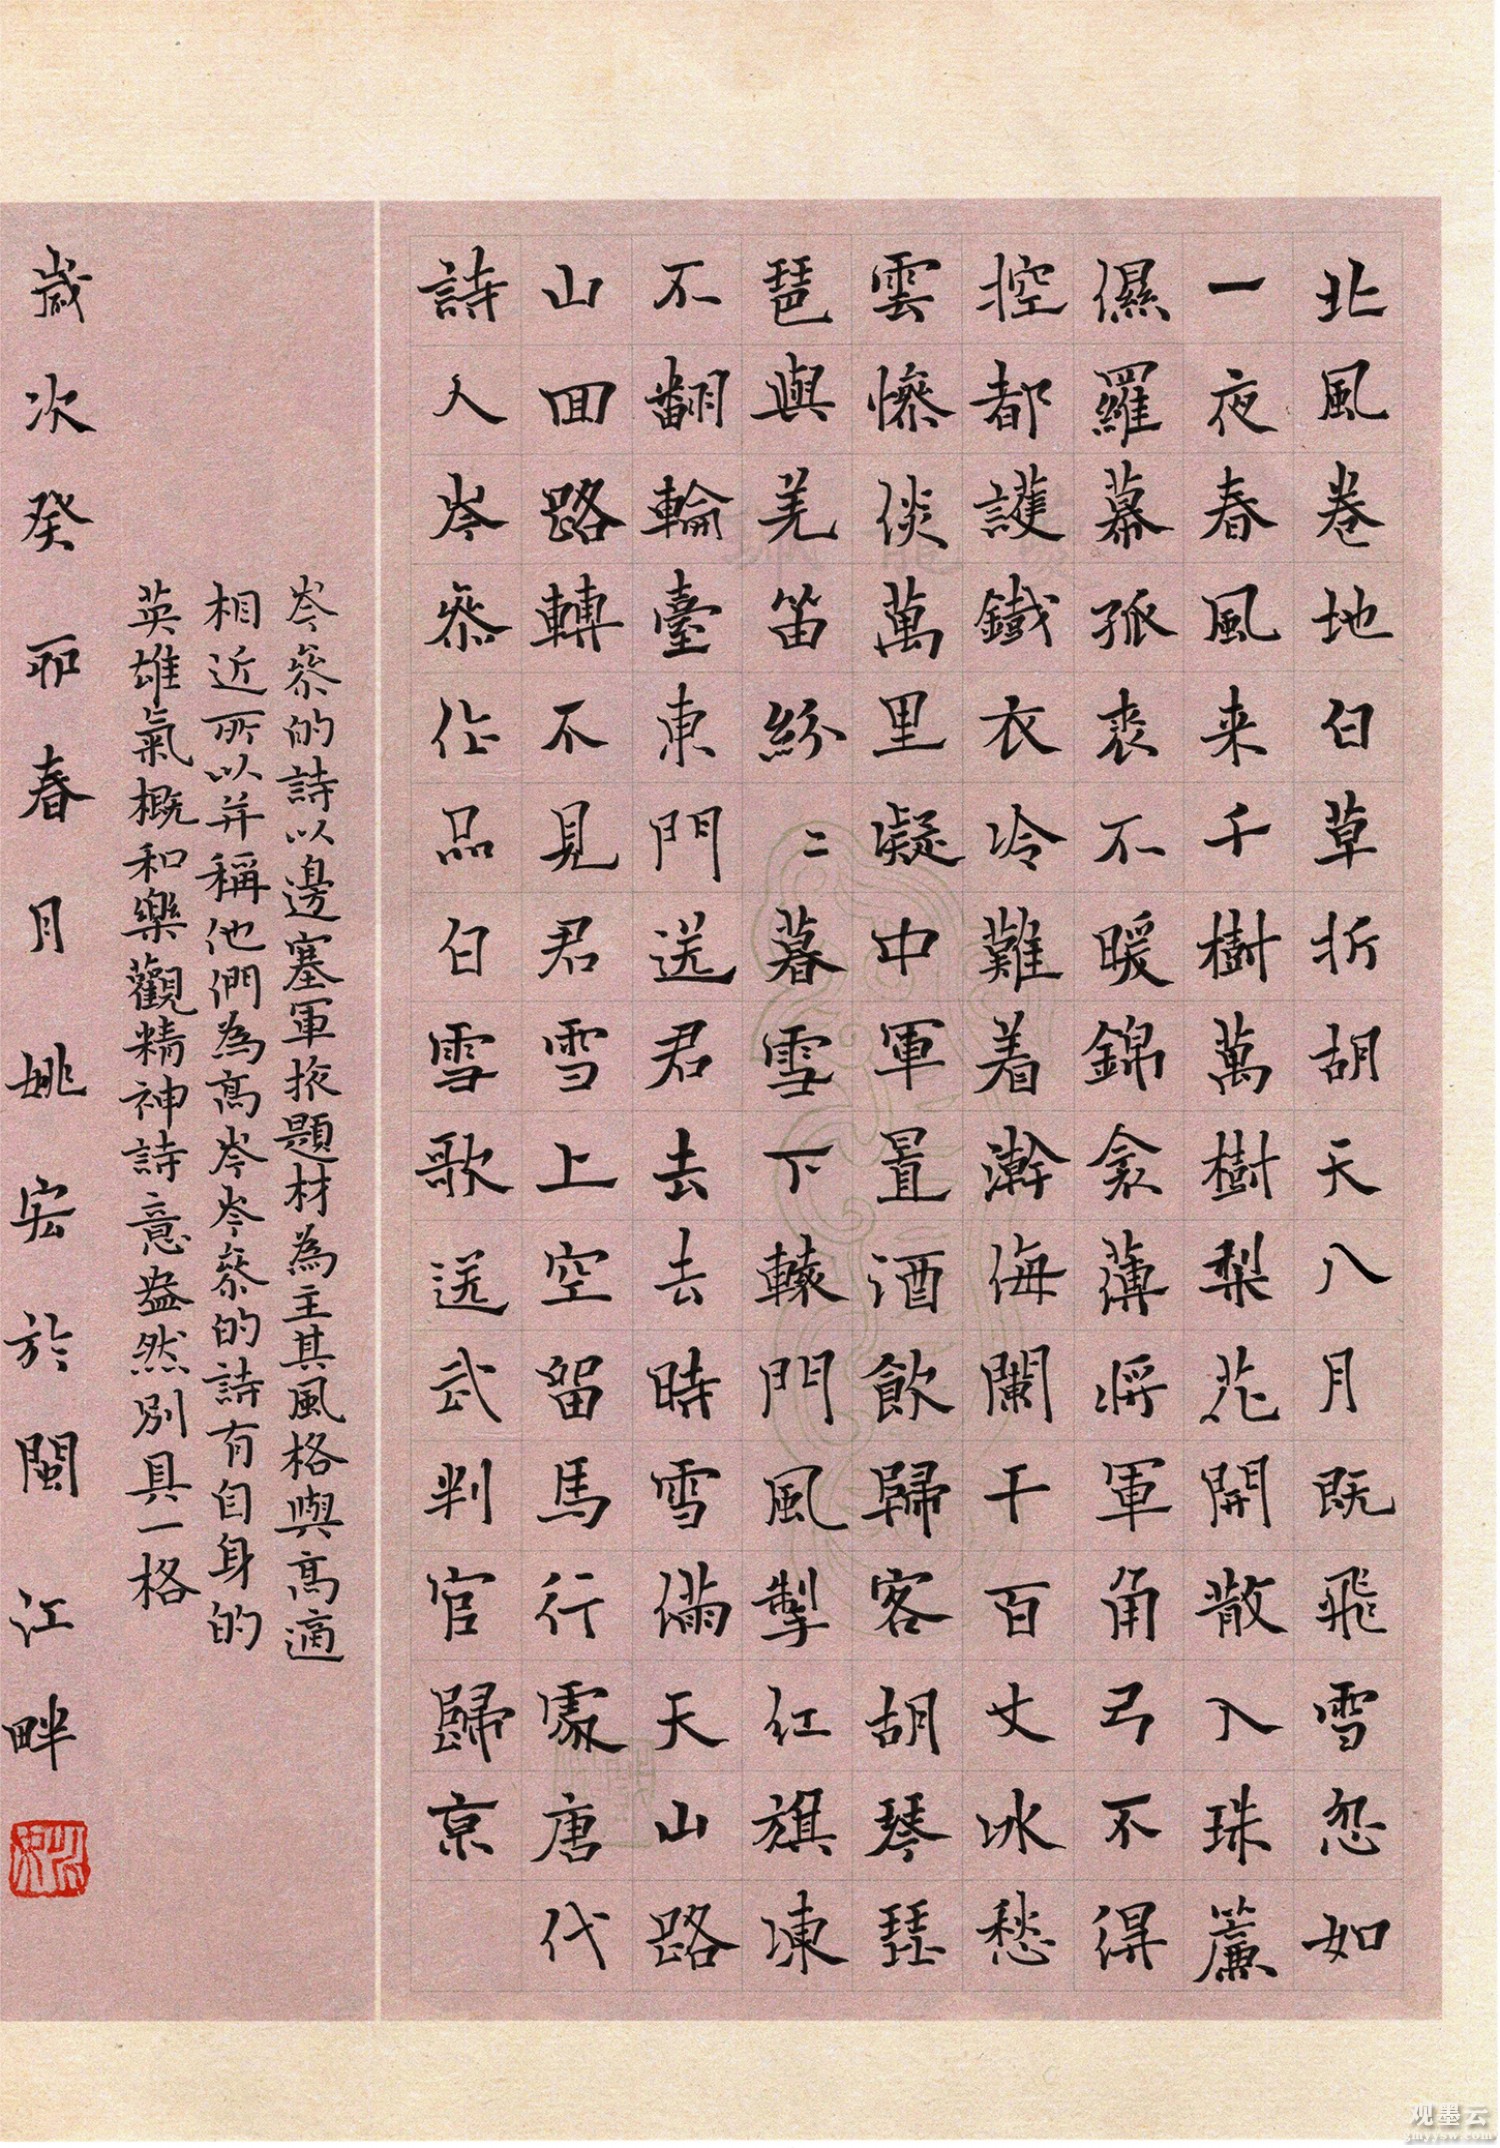 北風卷地白草折胡天八月既飛雪忽如
一夜春風来千樹萬樹梨花開散入珠簾
濕羅幕孤裘不暖錦衾薄将軍角弓不得
控都護鐵衣冷難着瀚海闌干百丈冰愁
雲惨淡萬里凝中軍置酒飲歸客胡琴琵
琶與羌笛紛〻暮雪下轅門風掣紅旗凍
不翻輪臺東門送君去去時雪滿天山路
山回路轉不見君雪上空留馬行處唐代
詩人岑參作品白雪歌送武判官歸京
岑參的詩以邊塞軍旅題材為主其風格與高適
相近所以并稱他們為高岑岑參的詩有自身的
英雄氣概和樂觀精神詩意盎然別具一格
歲次癸卯春月姚宏於閩江畔
观墨云
gmyysw.com